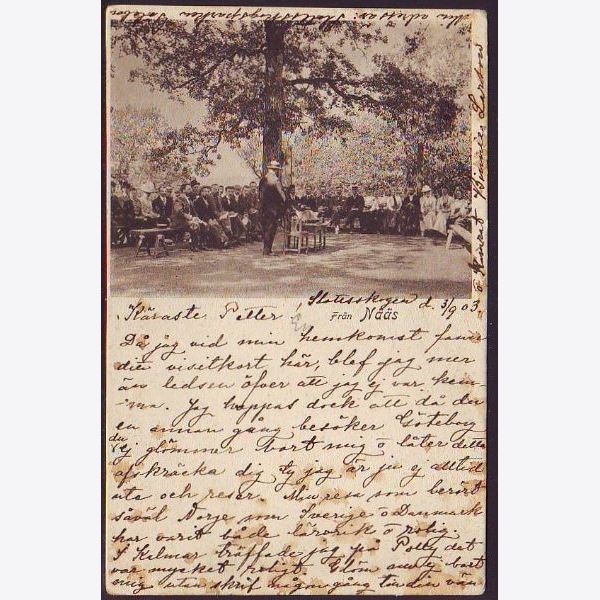 Slottsskogen d. 3/9 03.
Från Nääs
Käraste Petter!
Då jag vid min hemkomst fann
ditt visitkort här, blef jag mer
än ledsen öfver att jag ej var hem-
ma. Jag hoppas dock att då du
en annan gång besöker Göteborg
du
ej glömmer bort mig o låter detta
afskräcka dig ty jag är ju ej alltid
ute och reser. Min resa som berört
såväl Norje som Sverige o Danmark
har varit både lärorik o rolig.
I Kalmar träffade jag på Polly det
var mycket roligt. Glöm nu ej bort
mig utan skrif någon gång till din vän